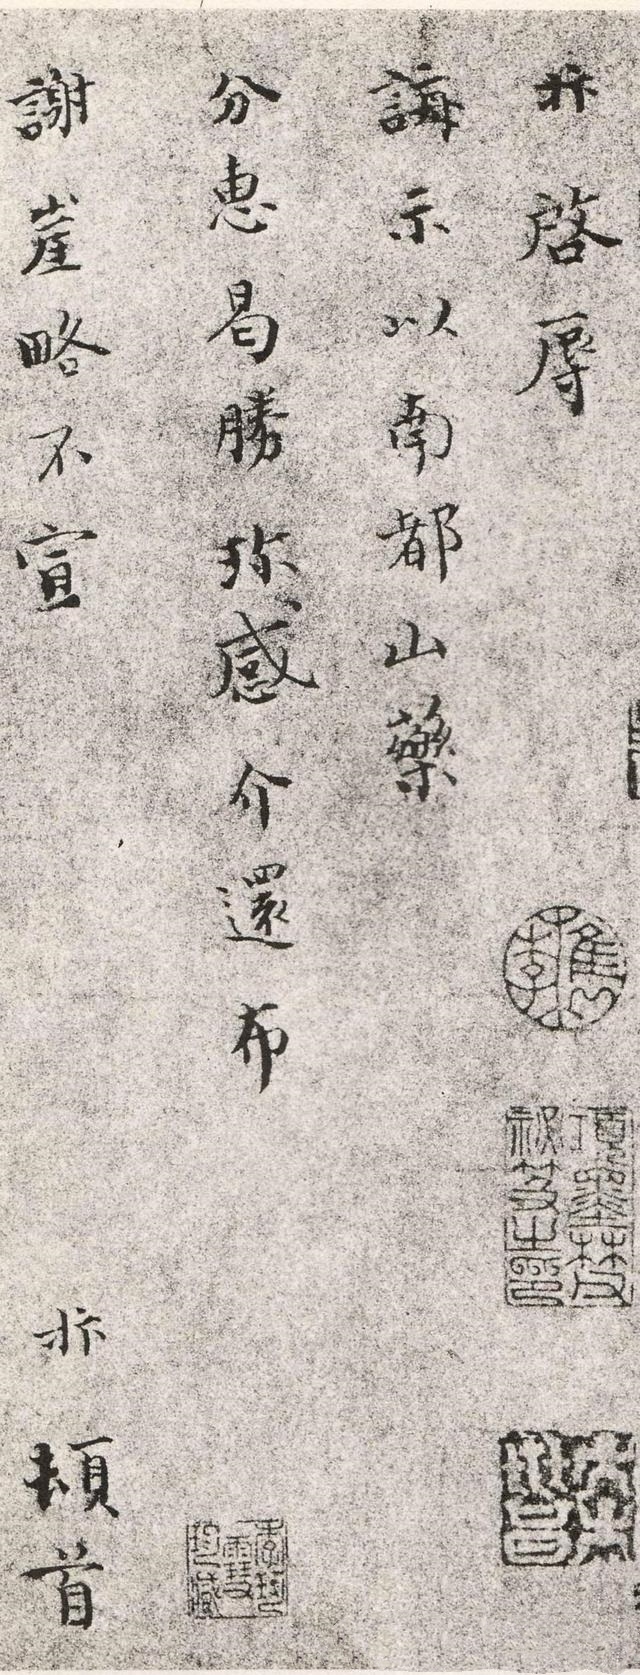 啓辱
誨示以南都山藥
分惠曷勝珎感介還布
謝崖略不宣
頓首